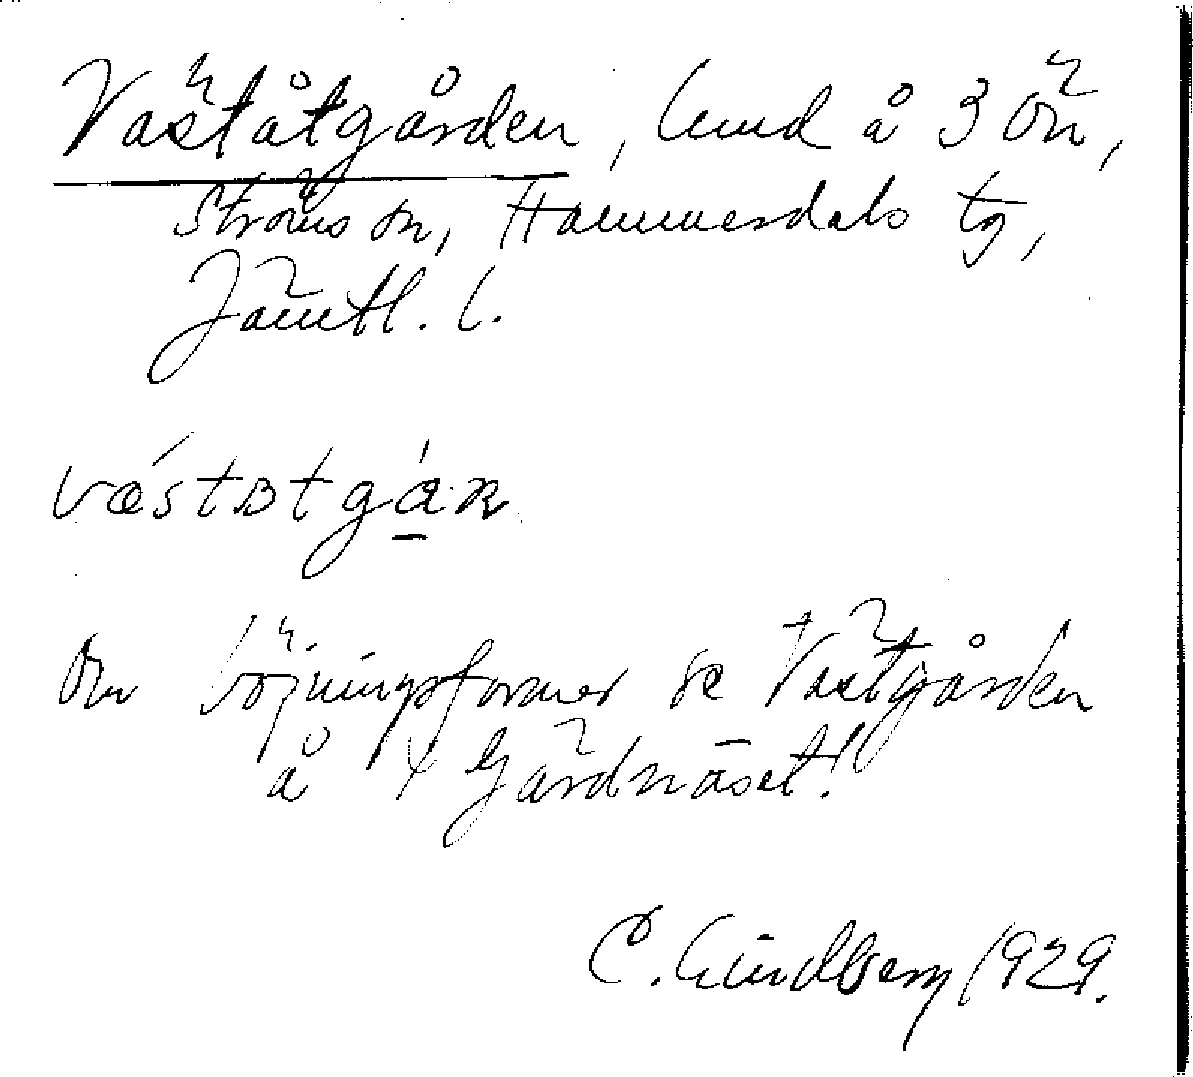 Väståtgården, hmd å 3 Ön,
Ströms sn, Hammerdals tg,
Jämtl. l.
væstɒtgáɳ
Om böjningsformer se Västgården
å 4 Gärdnäset!
C. Lindberg 1929.